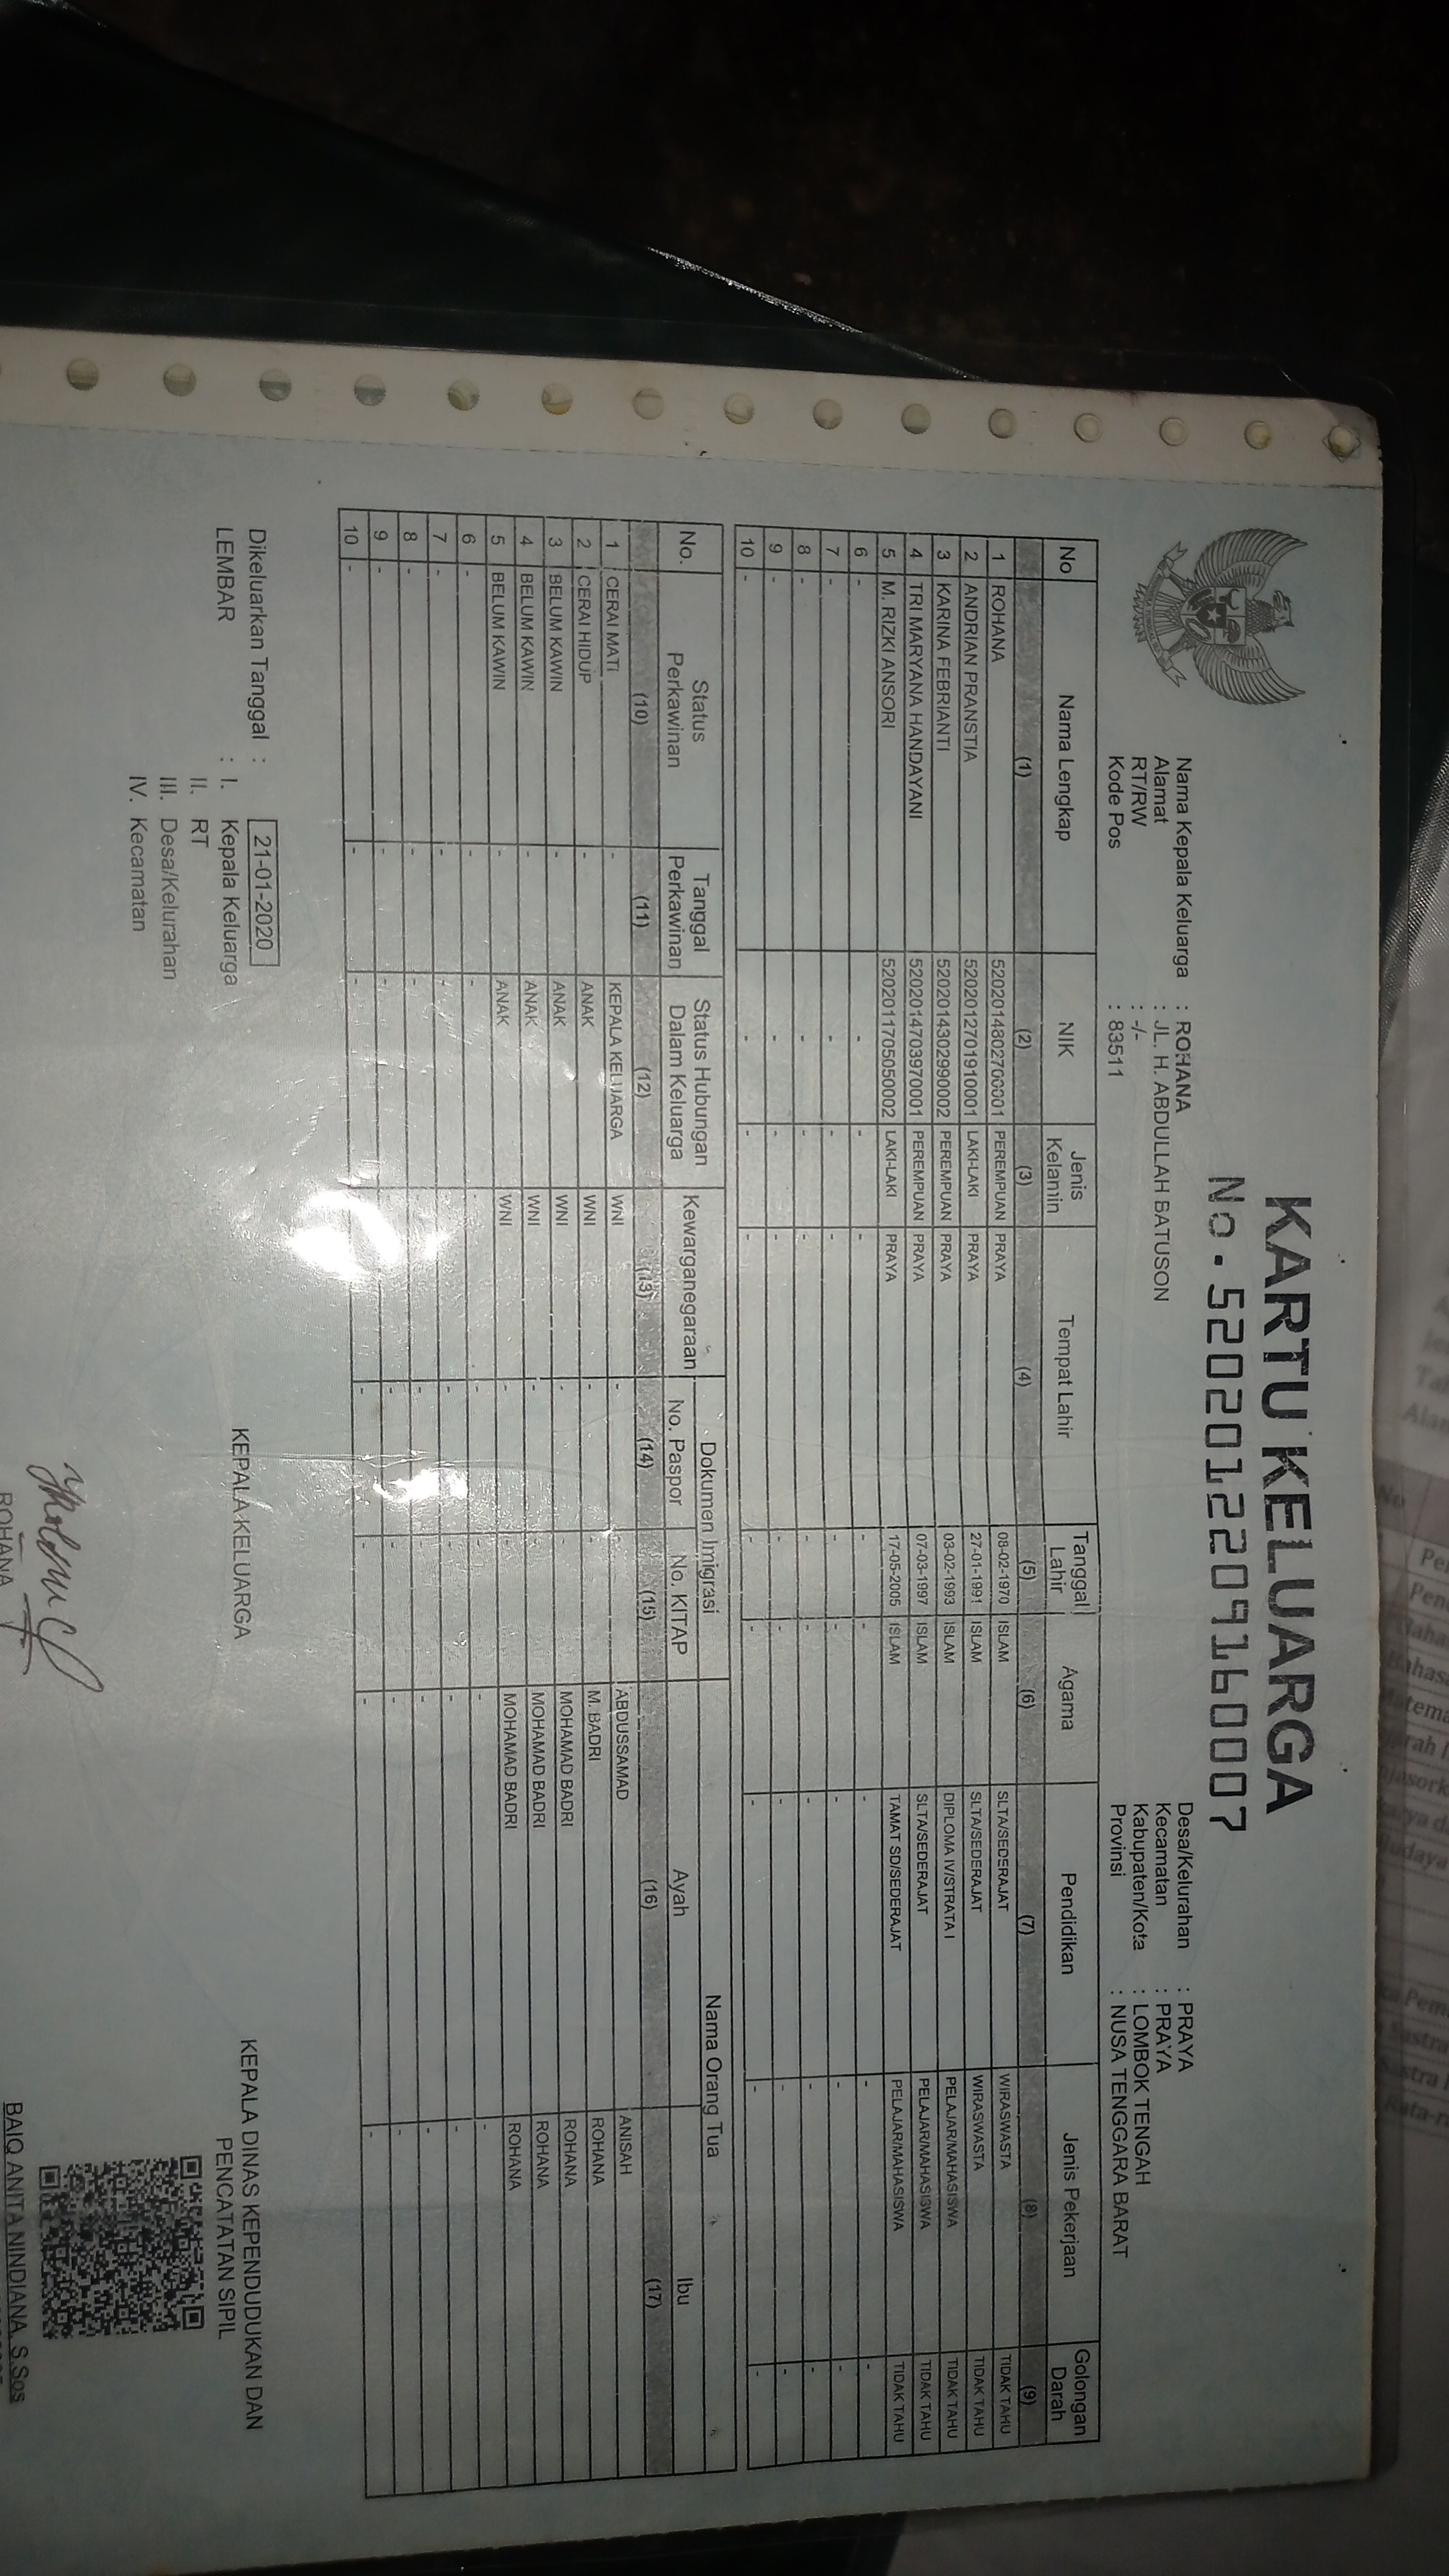 KARTU KELUARGA
No. 5202012209160007
Nama Kepala Keluarga : ROHANA
Alamat : JL. H. ABDULLAH BATUSON
RT/RW : -/-
Kode Pos : 83511
Desa/Kelurahan : PRAYA
Kecamatan : PRAYA
Kabupaten/Kota : LOMBOK TENGAH
Provinsi : NUSA TENGGARA BARAT
No Nama Lengkap NIK Jenis Kelamin Tempat Lahir Tanggal Lahir Agama Pendidikan Jenis Pekerjaan Golongan Darah
(1) (2) (3) (4) (5) (6) (7) (8) (9)
1 ROHANA 5202014802700001 PEREMPUAN PRAYA 08-02-1970 ISLAM SLTA/SEDERAJAT WIRASWASTA TIDAK TAHU
2 ANDRIAN PRANSTIA 5202012701910001 LAKI-LAKI PRAYA 27-01-1991 ISLAM SLTA/SEDERAJAT WIRASWASTA TIDAK TAHU
3 KARINA FEBRIANTI 5202014302990002 PEREMPUAN PRAYA 03-02-1993 ISLAM DIPLOMA IV/STRATA I PELAJAR/MAHASISWA TIDAK TAHU
4 TRI MARYANA HANDAYANI 5202014703970001 PEREMPUAN PRAYA 07-03-1997 ISLAM SLTA/SEDERAJAT PELAJAR/MAHASISWA TIDAK TAHU
5 M. RIZKI ANSORI 5202011705050002 LAKI-LAKI PRAYA 17-05-2005 ISLAM TAMAT SD/SEDERAJAT PELAJAR/MAHASISWA TIDAK TAHU
6 - - - - - - - - -
7 - - - - - - - - -
8 - - - - - - - - -
9 - - - - - - - - -
10 - - - - - - - - -
No. Status Perkawinan Tanggal Perkawinan Status Hubungan Dalam Keluarga Kewarganegaraan Dokumen Imigrasi Nama Orang Tua
No. Paspor No. KITAP Ayah Ibu
(10) (11) (12) (13) (14) (15) (16) (17)
1 CERAI MATI - KEPALA KELUARGA WNI - - ABDUSSAMAD ANISAH
2 CERAI HIDUP - ANAK WNI - - M. BADRI ROHANA
3 BELUM KAWIN - ANAK WNI - - MOHAMAD BADRI ROHANA
4 BELUM KAWIN - ANAK WNI - - MOHAMAD BADRI ROHANA
5 BELUM KAWIN - ANAK WNI - - MOHAMAD BADRI ROHANA
6 - - - - - - - -
7 - - - - - - - -
8 - - - - - - - -
9 - - - - - - - -
10 - - - - - - - -
Dikeluarkan Tanggal : 21-01-2020
LEMBAR : I. Kepala Keluarga
II. RT
III. Desa/Kelurahan
IV. Kecamatan
KEPALA KELUARGA
ROHANA
KEPALA DINAS KEPENDUDUKAN DAN
PENCATATAN SIPIL
BAIQ ANITA NINDIANA, S.Sos